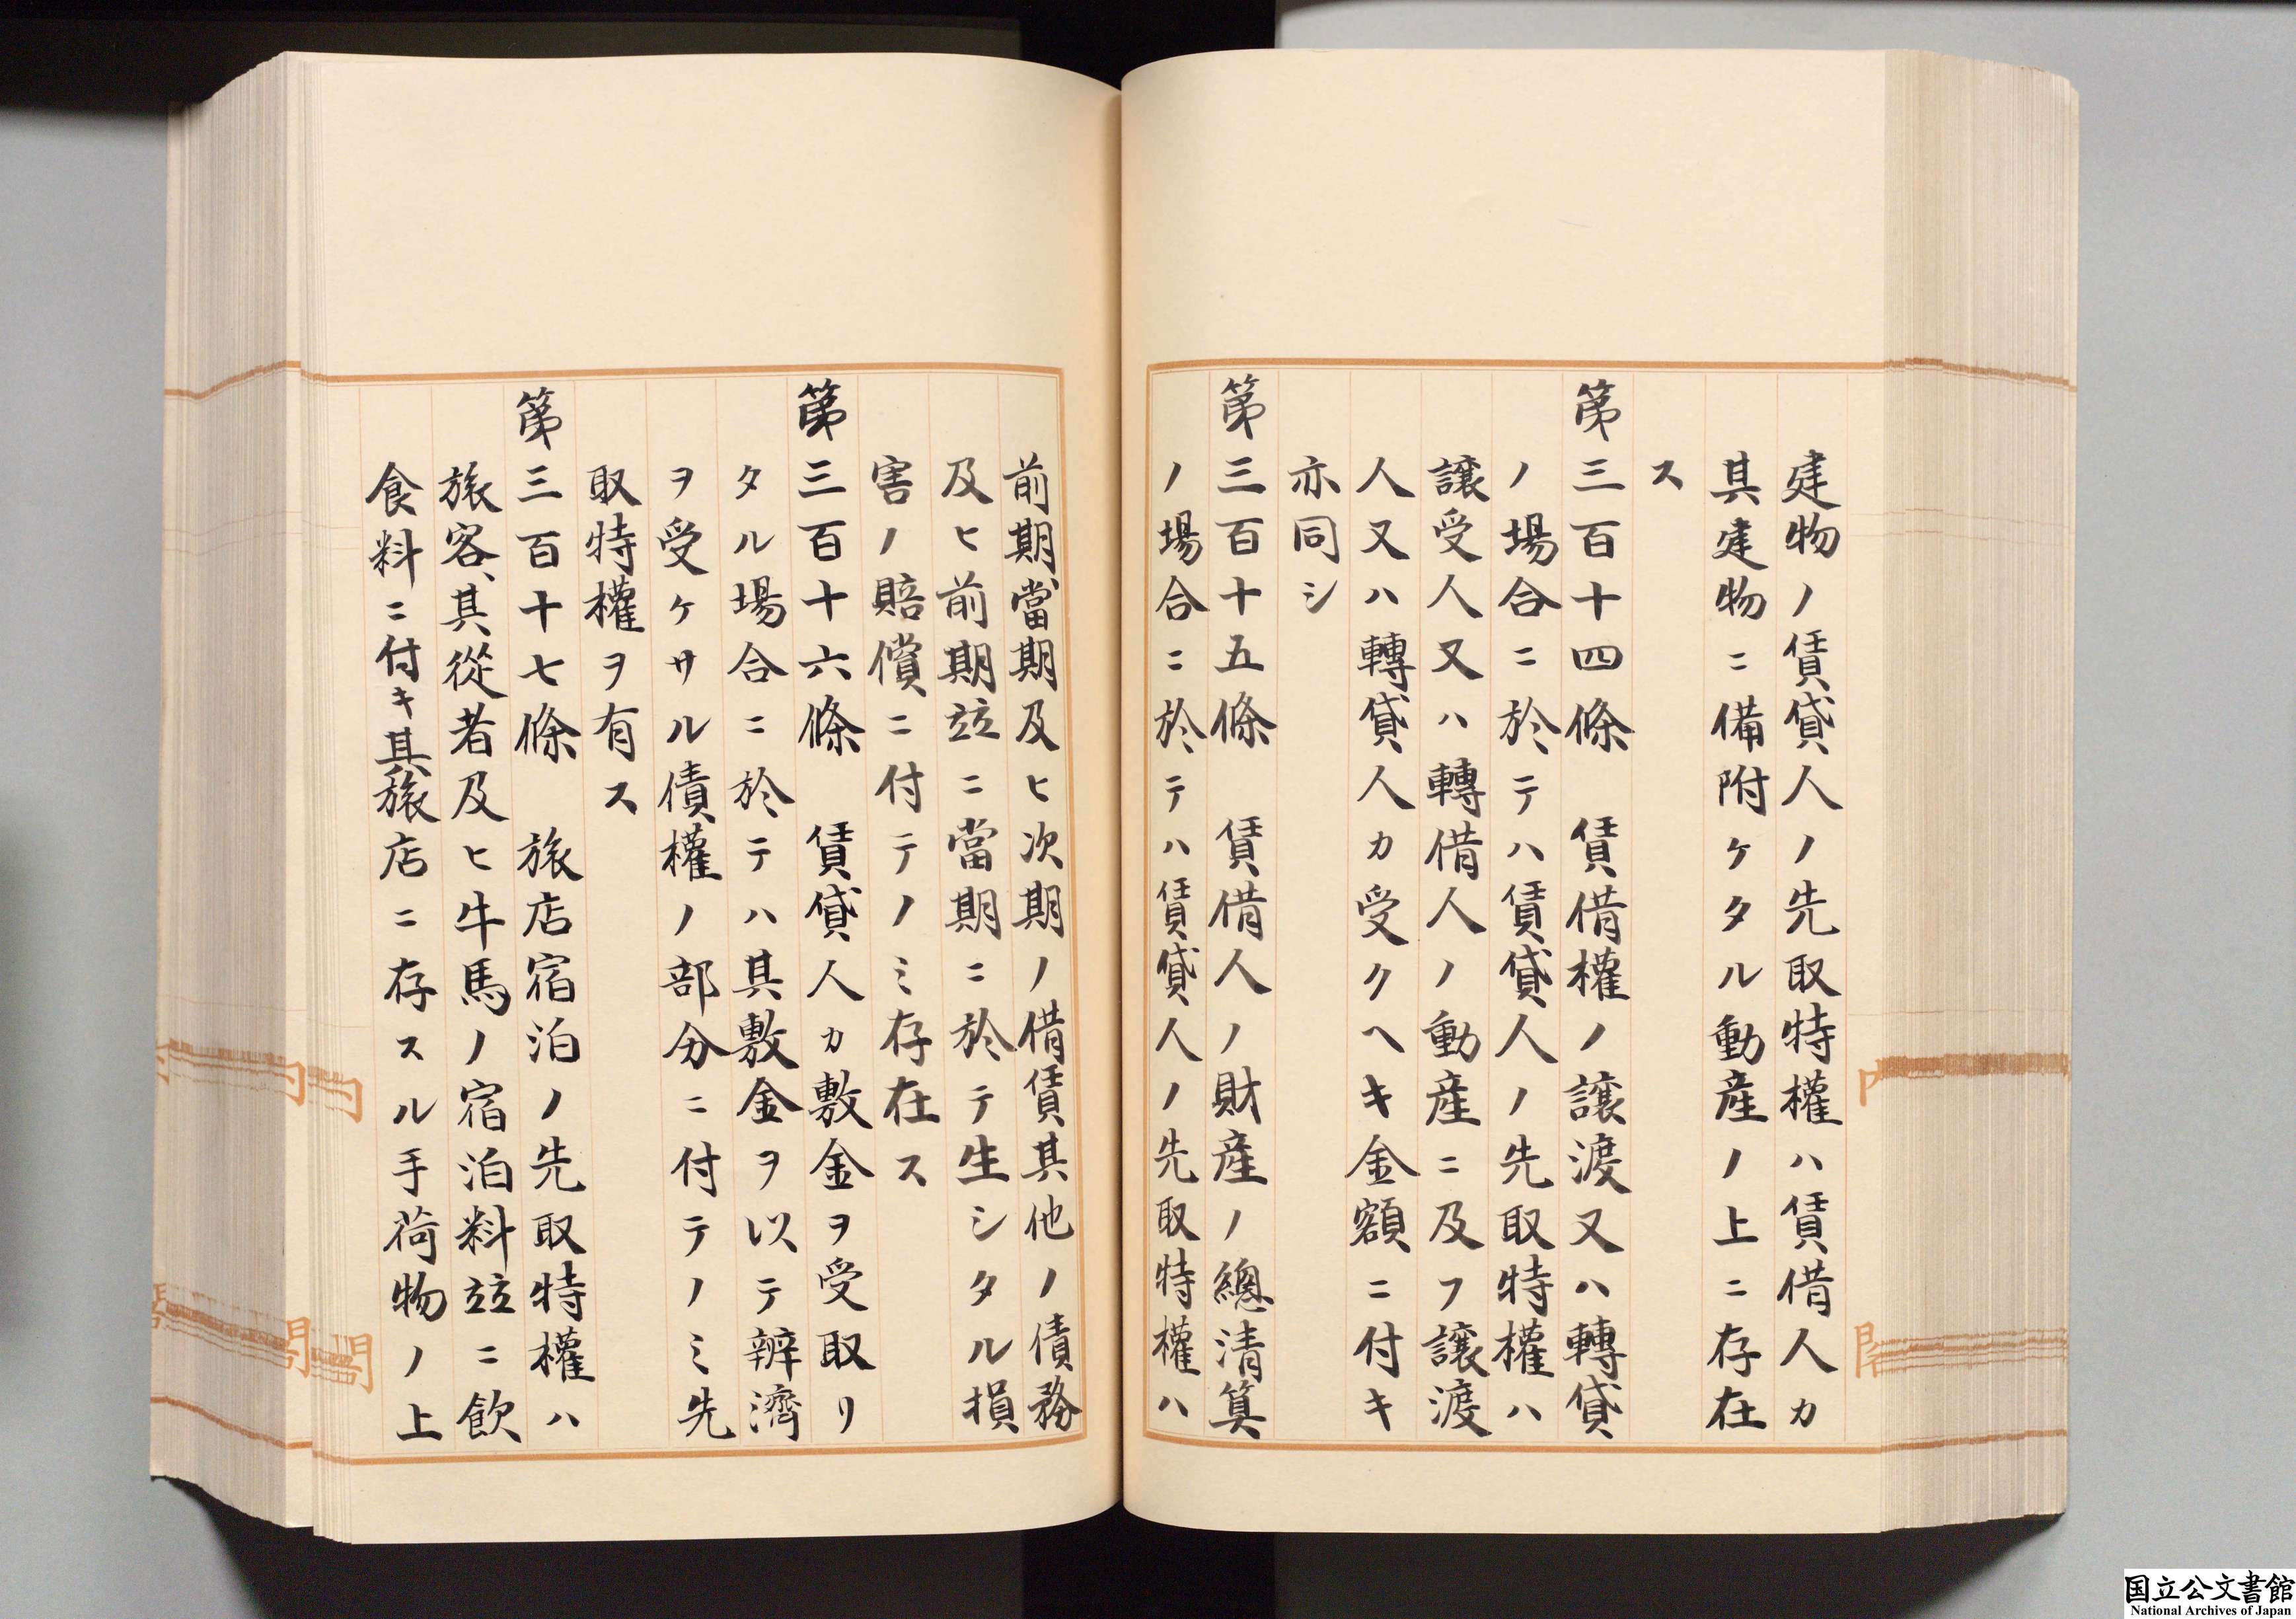 建物ノ賃貸人ノ先取特權ハ賃借人カ
其建物ニ備附ケタル動產ノ上ニ存在
ス
第三百十四條　賃借權ノ讓渡又ハ轉貸
ノ場合ニ於テハ賃貸人ノ先取特權ハ
讓受人又ハ轉借人ノ動產ニ及フ讓渡
人又ハ轉貸人カ受クヘキ金額ニ付キ
亦同シ
第三百十五條　賃借人ノ財產ノ總清算
ノ場合ニ於テハ賃貸人ノ先取特權ハ
前期當期及ヒ次期ノ借賃其他ノ債務
及ヒ前期竝ニ當期ニ於テ生シタル損
害ノ賠償ニ付テノミ存在ス
第三百十六條　賃貸人カ敷金ヲ受取リ
タル場合ニ於テハ其敷金ヲ以テ辨濟
ヲ受ケサル債權ノ部分ニ付テノミ先
取特權ヲ有ス
第三百十七條　旅店宿泊ノ先取特權ハ
旅客、其從者及ヒ牛馬ノ宿泊料竝ニ飮
食料ニ付キ其旅店ニ存スル手荷物ノ上
内
閣
内
閣
閣
国立公文書館
National Archives of Japan